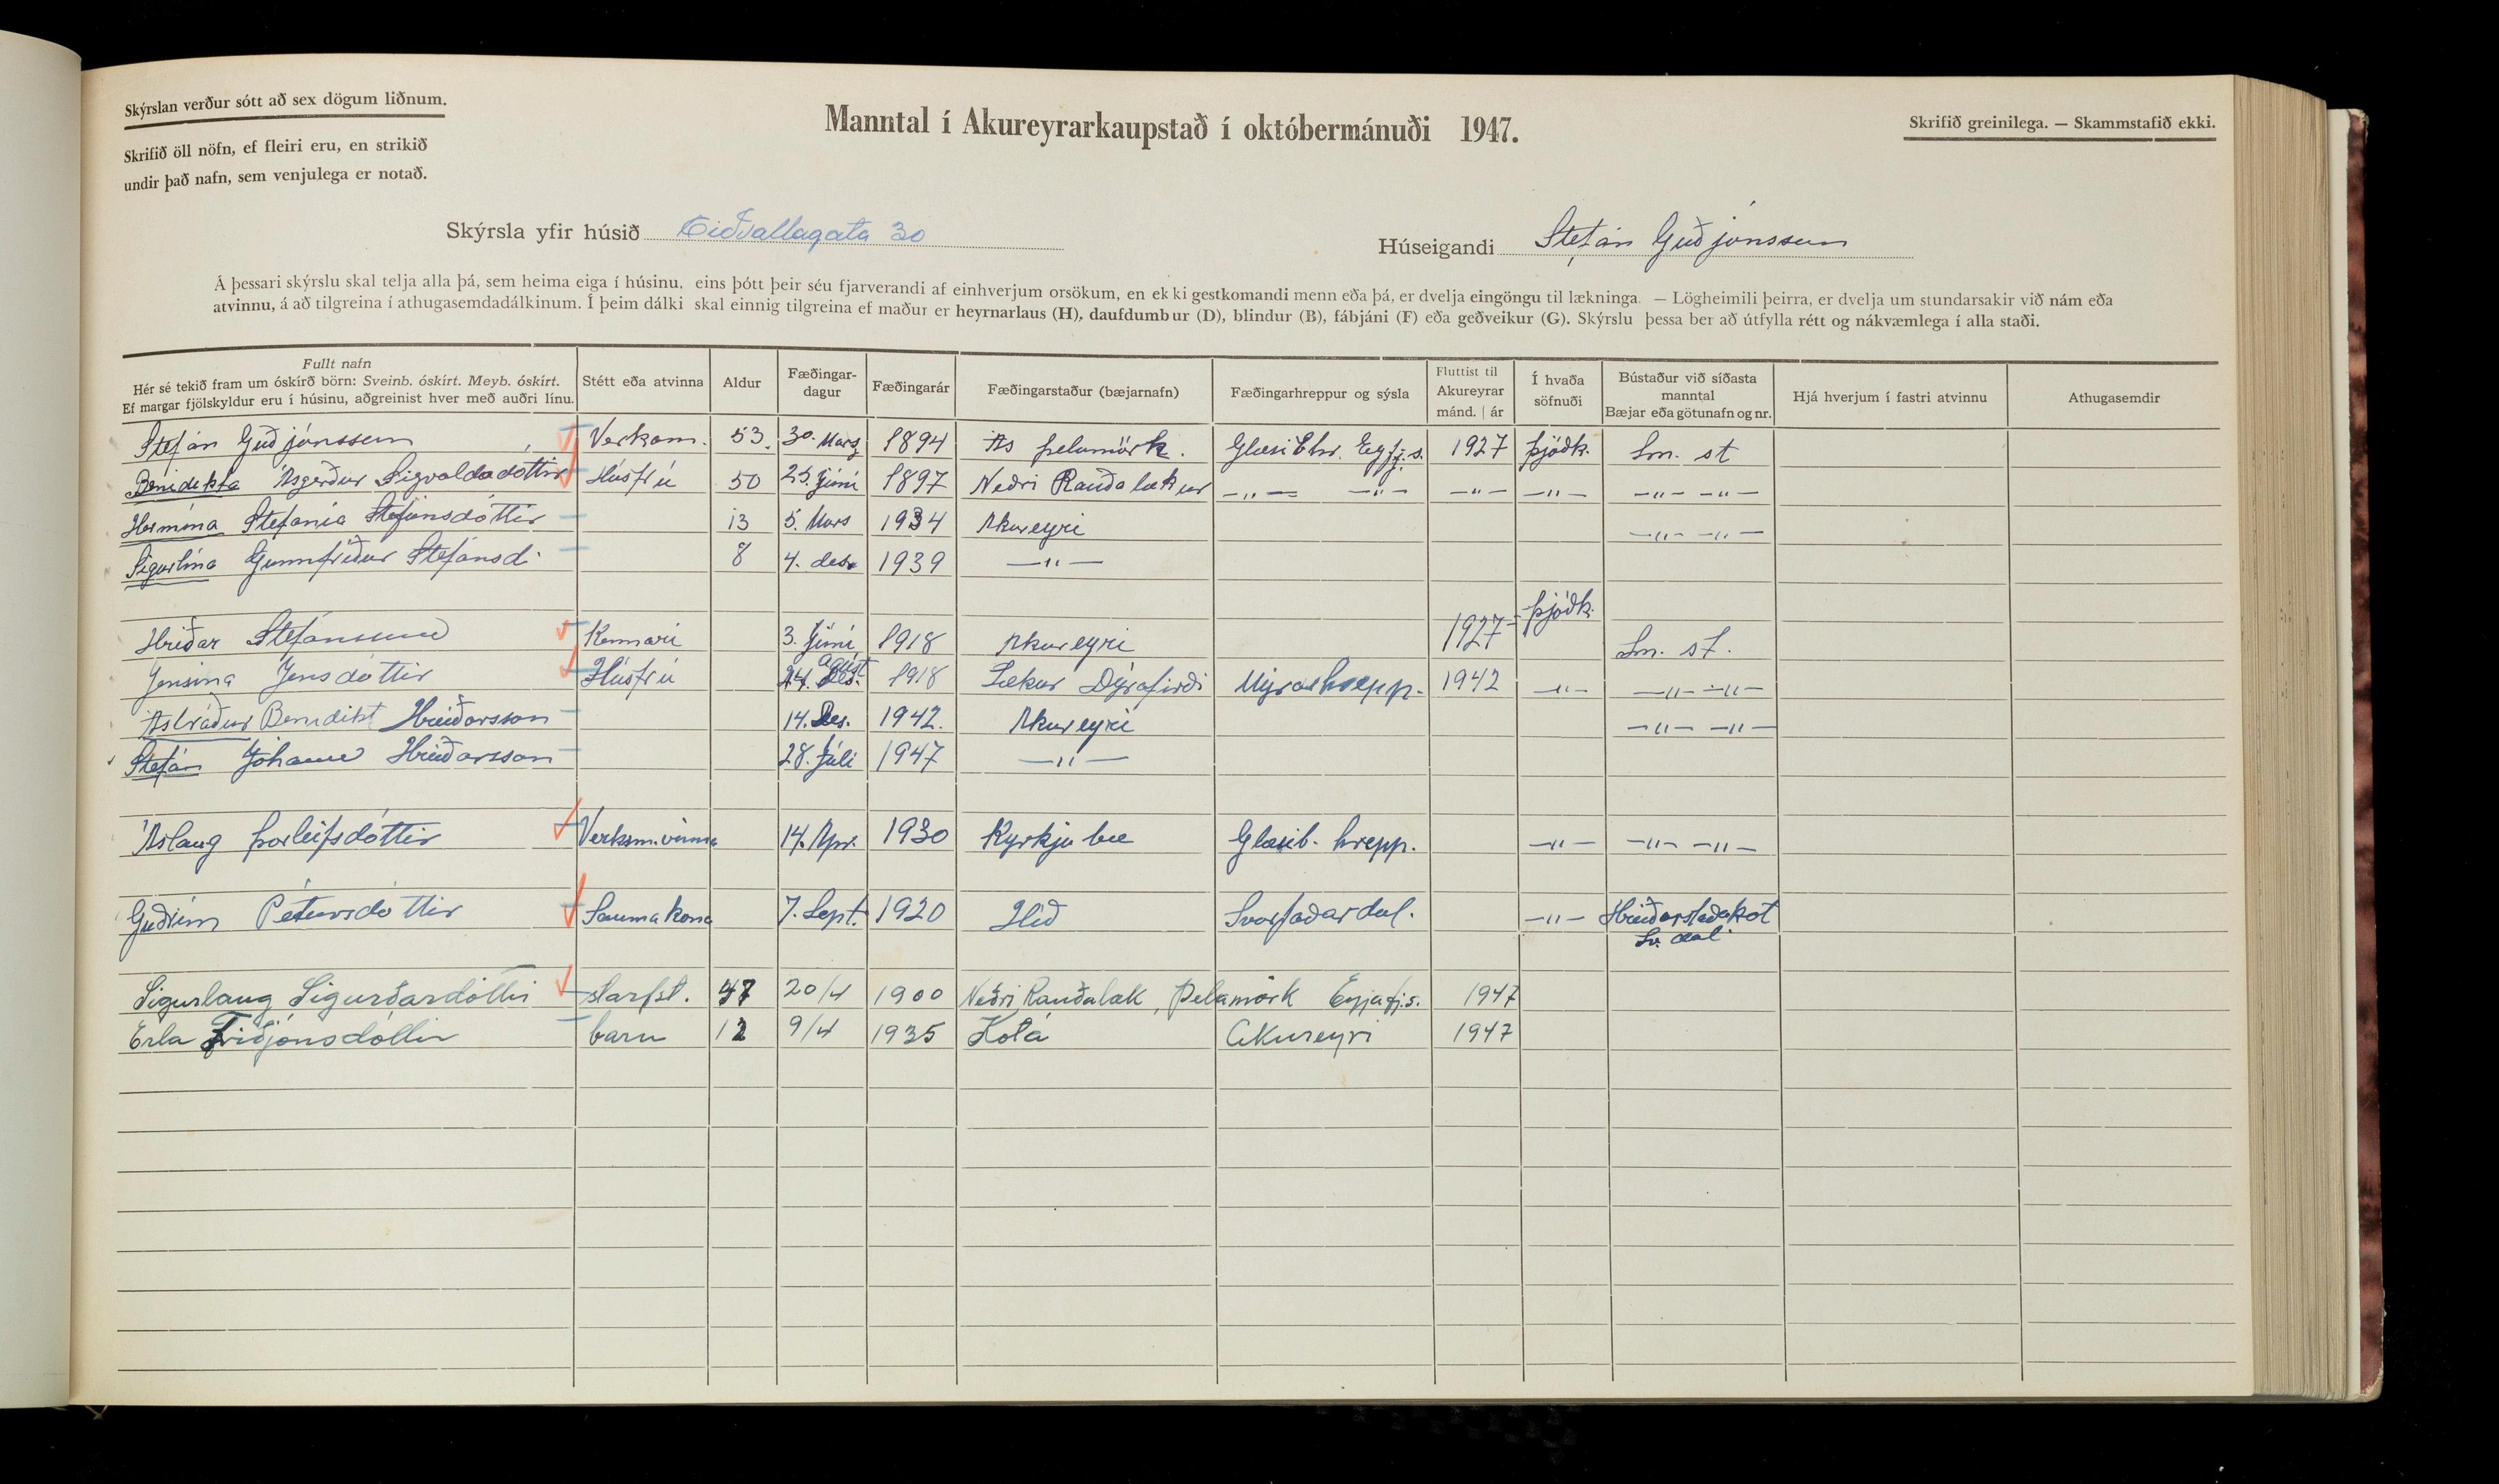 Skýrslan verður sótt að sex dögum liðnum.
Skrifið öll nöfn, ef fleiri eru, en strikið
undir það nafn, sem venjulega er notað.
Manntal í Akureyrarkaupstað í októbermánuði 1947.
Skrifið greinilega. — Skammstafið ekki.
Skýrsla yfir húsið Eiðsvallagata 30
Húseigandi Stefán Guðjónsson
Á þessari skýrslu skal telja alla þá, sem heima eiga í húsinu, eins þótt þeir séu fjarverandi af einhverjum orsökum, en ekki gestkomandi menn eða þá, er dvelja eingöngu til lækninga. — Lögheimili þeirra, er dvelja um stundarsakir við nám eða
atvinnu, á að tilgreina í athugasemdadálkinum. Í þeim dálki skal einnig tilgreina ef maður er heyrnarlaus (H), daufdumbur (D), blindur (B), fábjáni (F) eða geðveikur (G). Skýrslu þessa ber að útfylla rétt og nákvæmlega í alla staði.
Fullt nafn
Hér sé tekið fram um óskírð börn: Sveinb. óskírt. Meyb. óskírt.
Ef margar fjölskyldur eru í húsinu, aðgreinist hver með auðri línu.
Stétt eða atvinna
Aldur
Fæðingar-
dagur
Fæðingarár
Fæðingarstaður (bæjarnafn)
Fæðingarhreppur og sýsla
Fluttist til
Akureyrar
mánd. | ár
Í hvaða
söfnuði
Bústaður við síðasta
manntal
Bæjar eða götunafn og nr.
Hjá hverjum í fastri atvinnu
Athugasemdir
Stefán Guðjónsson Verkam. 53. 30. Marz 1894 Ás þelamörk. Glæsibhr. Eyfj.s. 1927 þjóðk. Sm. st
Benidikta Ásgerður Sigvaldadóttir Húsfrú 50 25. Júní 1897 Neðri Rauðalækur —"— —"— —"— —"— —"— —"—
Hermína Stefanía Stefánsdóttir 13 5. Mars 1934 Akureyri —"— —"—
Sigurlína Gunnfríður Stefánsd. 8 4. des. 1939 —"—
Hreiðar Stefánsson Kennari 3. Júní 1918 Akureyri 1927 þjóðk. Sm. st.
Jensína Jensdóttir Húsfrú 24. ágúst 1918 Lækur Dýrafirði Mýrarhrepp. 1942 —"— —"— —"—
Ástráður Benidikt Hreiðarsson 14. Des. 1942. Akureyri —"— —"—
Stefán Jóhann Hreiðarsson 28. Júlí 1947 —"—
Áslaug Þorleifsdóttir Verksm.vinna 14. Apr. 1930 Kyrkjubæ Glæsib. hrepp. —"— —"— —"—
Guðrún Pétursdóttir Saumakona 7. Sept. 1920 Hlíð Svarfaðardal. —"— Hreiðarstaðakot
Sv. dal.
Sigurlaug Sigurðardóttir starfst. 47 20/4 1900 Neðri Rauðalæk, Þelamörk Eyjafj.s. 1947
Erla Friðjónsdóttir barn 12 9/4 1935 Kotá Akureyri 1947